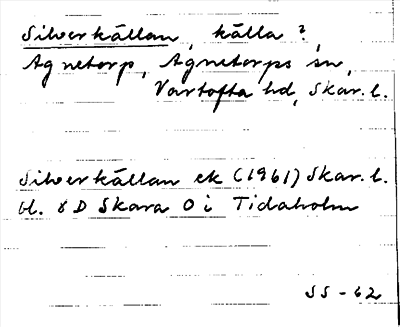 Silverkällan, källa?,
Agnetorp, Agnetorps sn,
Vartofta hd, Skar. l.
Silverkällan ek (1961) Skar. l.
bl. 8 D Skara O i Tidaholm
SS - 62